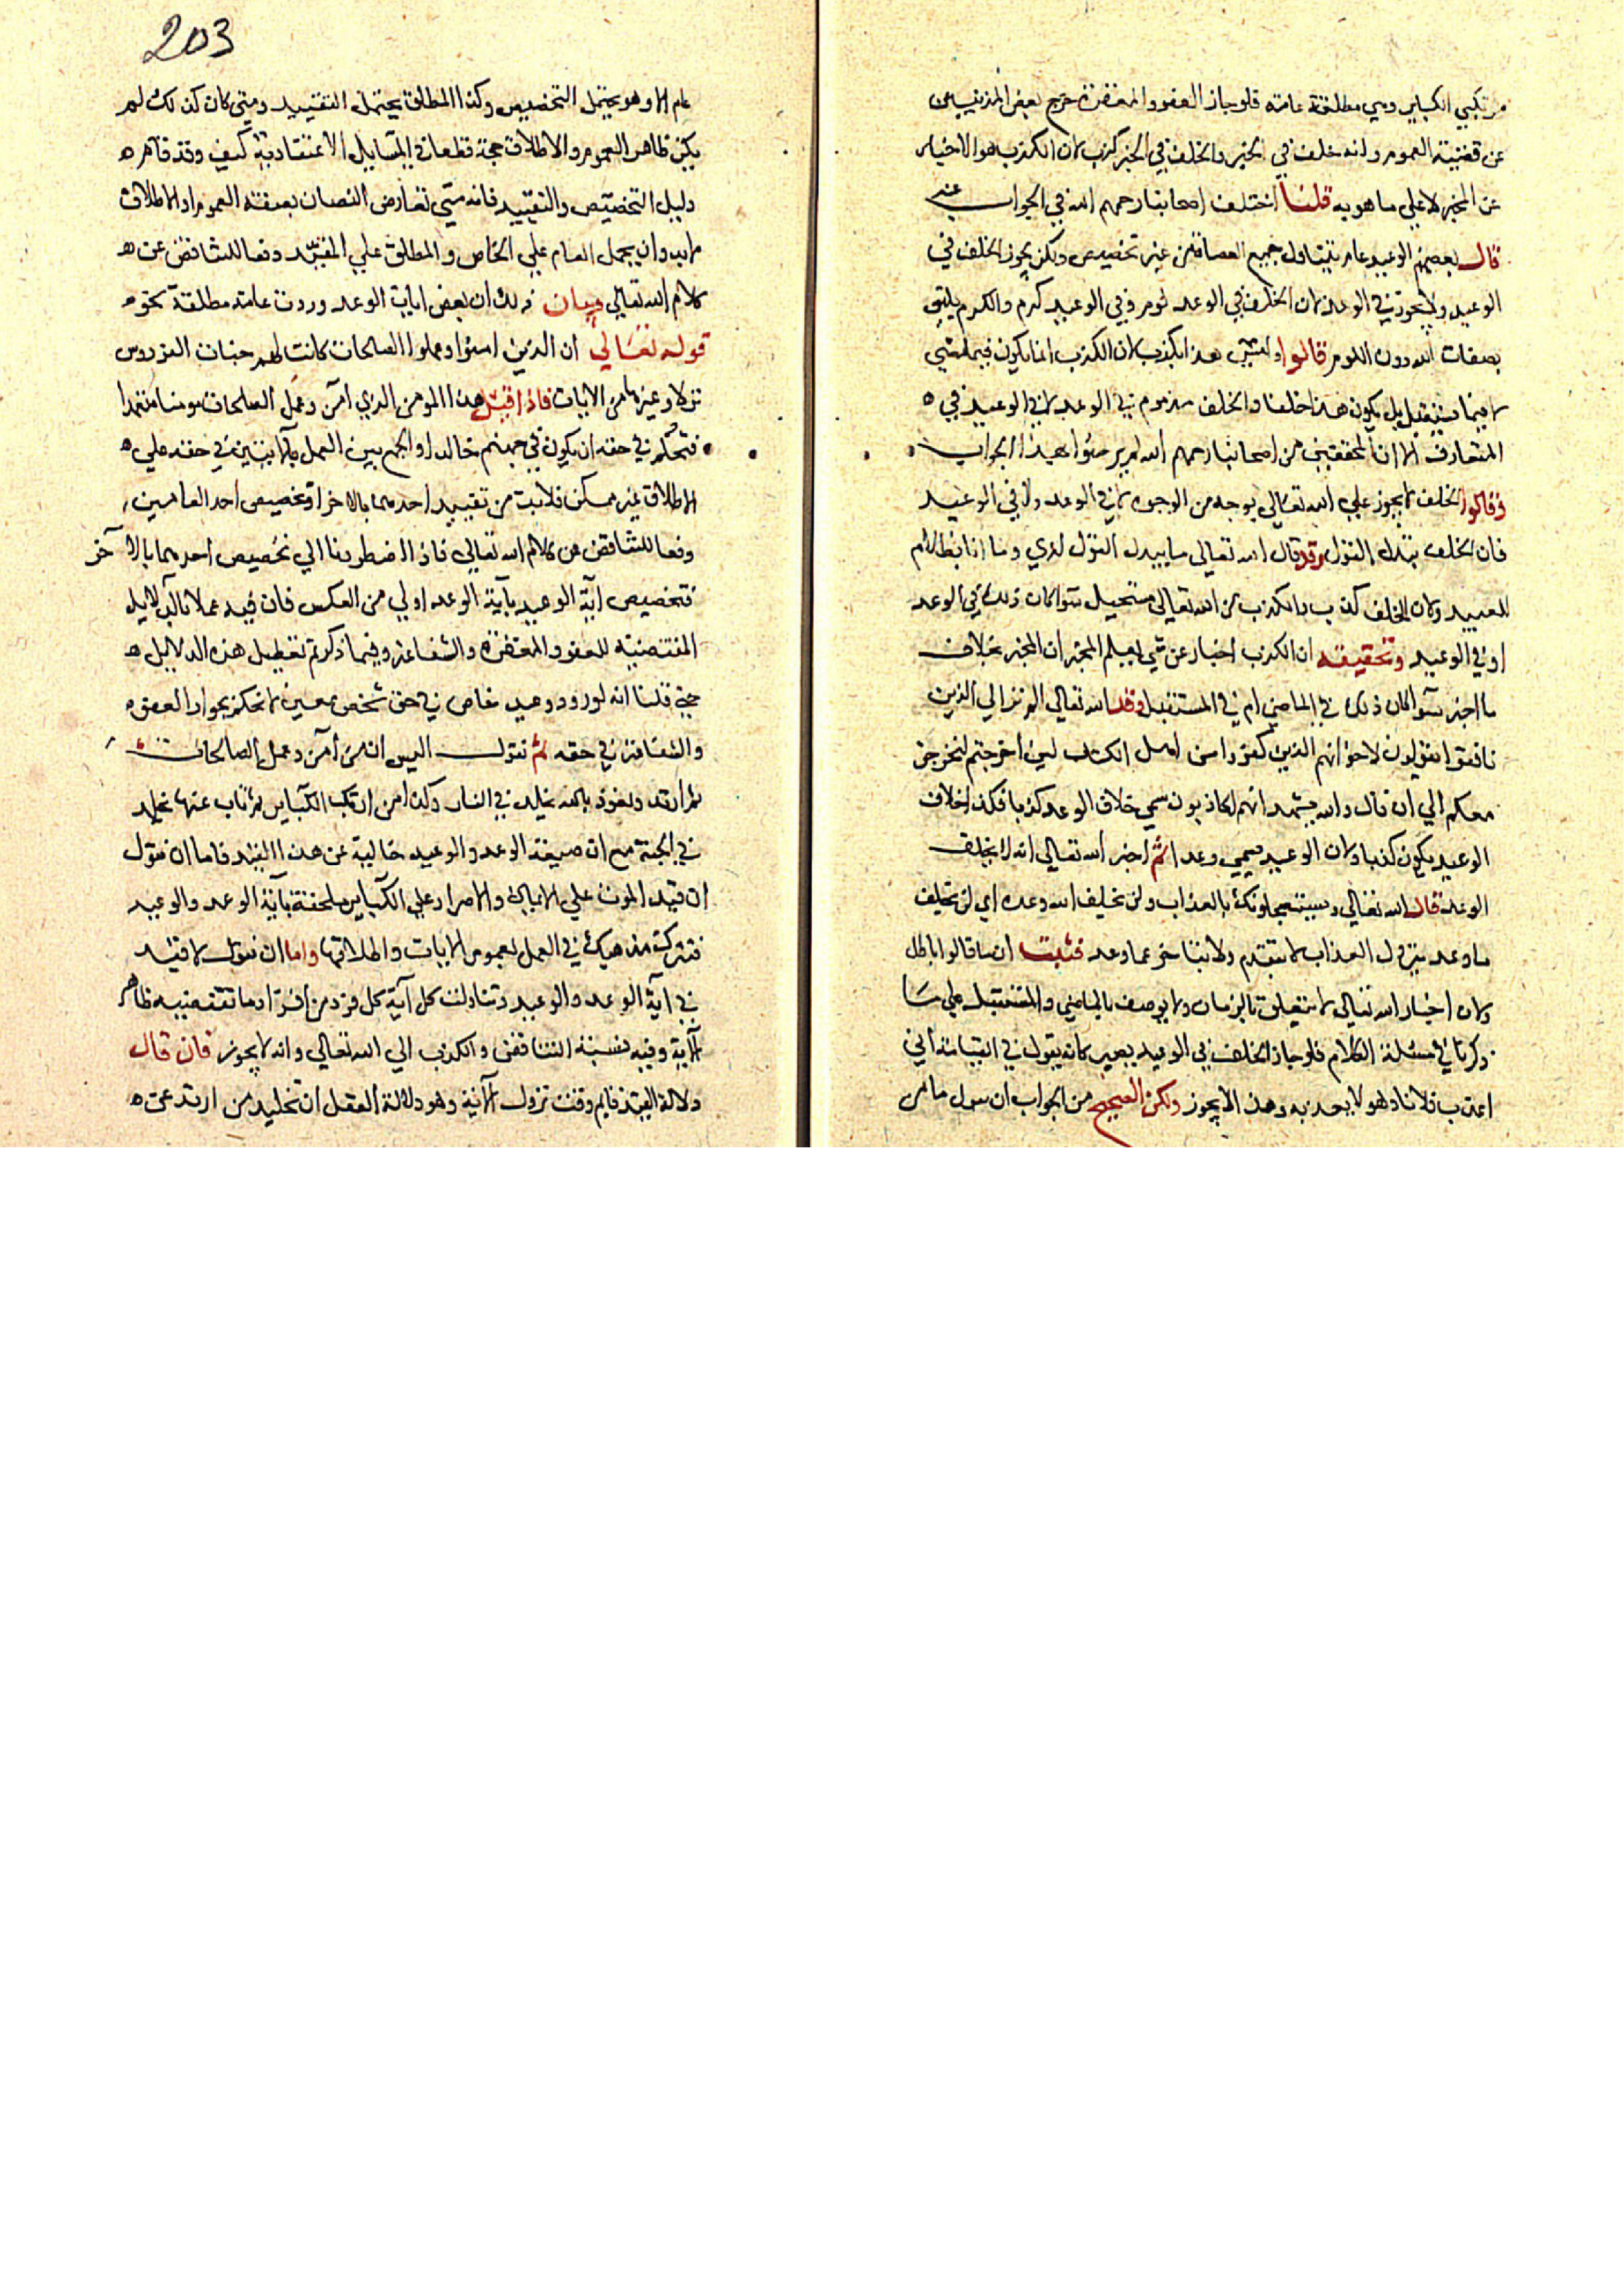 مرتكبي الكباير وهي مطلقة عامة فلو جاز العفو والمغفرة خرج بعض المذنبين من
عن قضية العموم وانه خلف في الخبر والخلف في الخبر كذب لان الكذب هو الاخبار
عن المخبر لا علي ما هو به قلنا اختلف اصحابنا رحمهم الله في الجواب عنه
قال بعضهم الوعيد عام يتناول جميع العصاة من غير تخصيص ولكن يجوز الخلف في
الوعيد ولا يجوز في الوعد لان الخلف في الوعد لوم وفي الوعيد كرم والكرم يليق
بصفات الله دون اللوم قالوا وليس هذا بكذب لان الكذب انما يكون فيما مضي
لا فيما يستقبل بل يكون هذا خلفا والخلف مذموم في الوعد لا في الوعيد في
المتعارف الا ان المحققين من اصحابنا رحمهم الله لم يرضوا بهذا الجواب
وقالوا الخلف لا يجوز علي الله تعالي بوجه من الوجوه لا في الوعد ولا في الوعيد
فان الخلف تبدل القول وقد قال الله تعالي ما يبدل القول لدي وما انا بظلام
للعبيد ولان الخلف كذب والكذب من الله تعالي مستحيل سوا كان ذلك في الوعد
او في الوعيد وتحقيقه ان الكذب اخبار عن شي يعلم المخبر ان المخبر بخلاف
ما اخبر سوا كان ذلك في الماضي ام في المستقبل وقال الله تعالي الم تر الي الذين
نافقوا يقولون لاخوانهم الذين كفروا من اهل الكتاب لين اخرجتم لنخرجن
معكم الي ان قال والله يشهد انهم لكاذبون سمي خلاف الوعد كذبا فكذا خلاف
الوعيد يكون كذبا ولان الوعيد يسمي وعدا ثم اخبر الله تعالي انه لا يخلف
الوعد قال الله تعالي ويستعجلونك بالعذاب ولن يخلف الله وعده اي لن يخلف
ما وعد من نزول العذاب لا يتقدم ولا يتاخر عما وعد فثبت ان ما قالوا باطل
ولان اخبار الله تعالي لا يتعلق بالزمان ولا يوصف بالماضي والمستقبل علي ما
ذكرنا في مسئلة الكلام فلو جاز الخلف في الوعيد يصير كانه يقول في القيامة اني
اعذب فلانا وهو لا يعذبه وهذا لا يجوز ولكن الصحيح من الجواب ان نقول ما من
203
عام الا وهو يحتمل التخصيص وكذا المطلق يحتمل التقييد ومتي كان كذلك لم
يكن ظاهر العموم والاطلاق حجة قطعا في المسايل الاعتقادية كيف وقد قام
دليل التخصيص والتقييد فانه متي تعارض النصان بصفة العموم او الاطلاق
لا بد وان يحمل العام علي الخاص والمطلق علي المقيد دفعا للتناقض عن
كلام الله تعالي وبيان ذلك ان بعض ايات الوعد وردت عامة مطلقة نحو
قوله تعالي ان الذين امنوا وعملوا الصالحات كانت لهم جنات الفردوس
نزلا وغيرها من الايات فاذا قتل هذا المومن الذي آمن وعمل الصالحات مومنا متعمدا
فيحكم في حقه ان يكون في جهنم خالدا والجمع بين العمل بالايتين في حقه علي
الاطلاق غير ممكن فلا بد من تقييد احدهما بالاخر او تخصيص احد العامين
دفعا للتناقض عن كلام الله تعالي فاذا اضطررنا الي تخصيص احدهما بالآخر
فتخصيص آية الوعيد بآية الوعد اولي من العكس فان فيه عملا بالدلايل
المقتضية للعفو والمغفرة والشفاعة وفيما ذكرتم تعطيل هذه الدلايل
حتي قلنا انه لو ورد وعيد خاص في حق شخص معين لا نحكم بجواز العفو
والشفاعة في حقه ثم نقول اليس ان من آمن وعمل الصالحات
ثم ارتد ونعوذ بالله يخلد في النار وكذا من ارتكب الكباير ثم تاب عنها يخلد
في الجنة مع ان صيغة الوعد والوعيد خالية عن هذا القيد فاما ان نقول
ان قيد الموت علي الايمان والاصرار علي الكباير ملحقة بآية الوعد والوعيد
فتركت مذهبك في العمل بعموم الايات واطلاقها واما ان نقول لا قيد
في آية الوعد والوعيد وتناولت كل آية كل فرد من افراد ما تقتضيه ظاهر
الآية وفيه نسبة التناقض والكذب الي الله تعالي وانه لا يجوز فان قال
دلالة القيد قايم وقت نزول الآية وهو دلالة العقل ان تخليد من ارتد عن